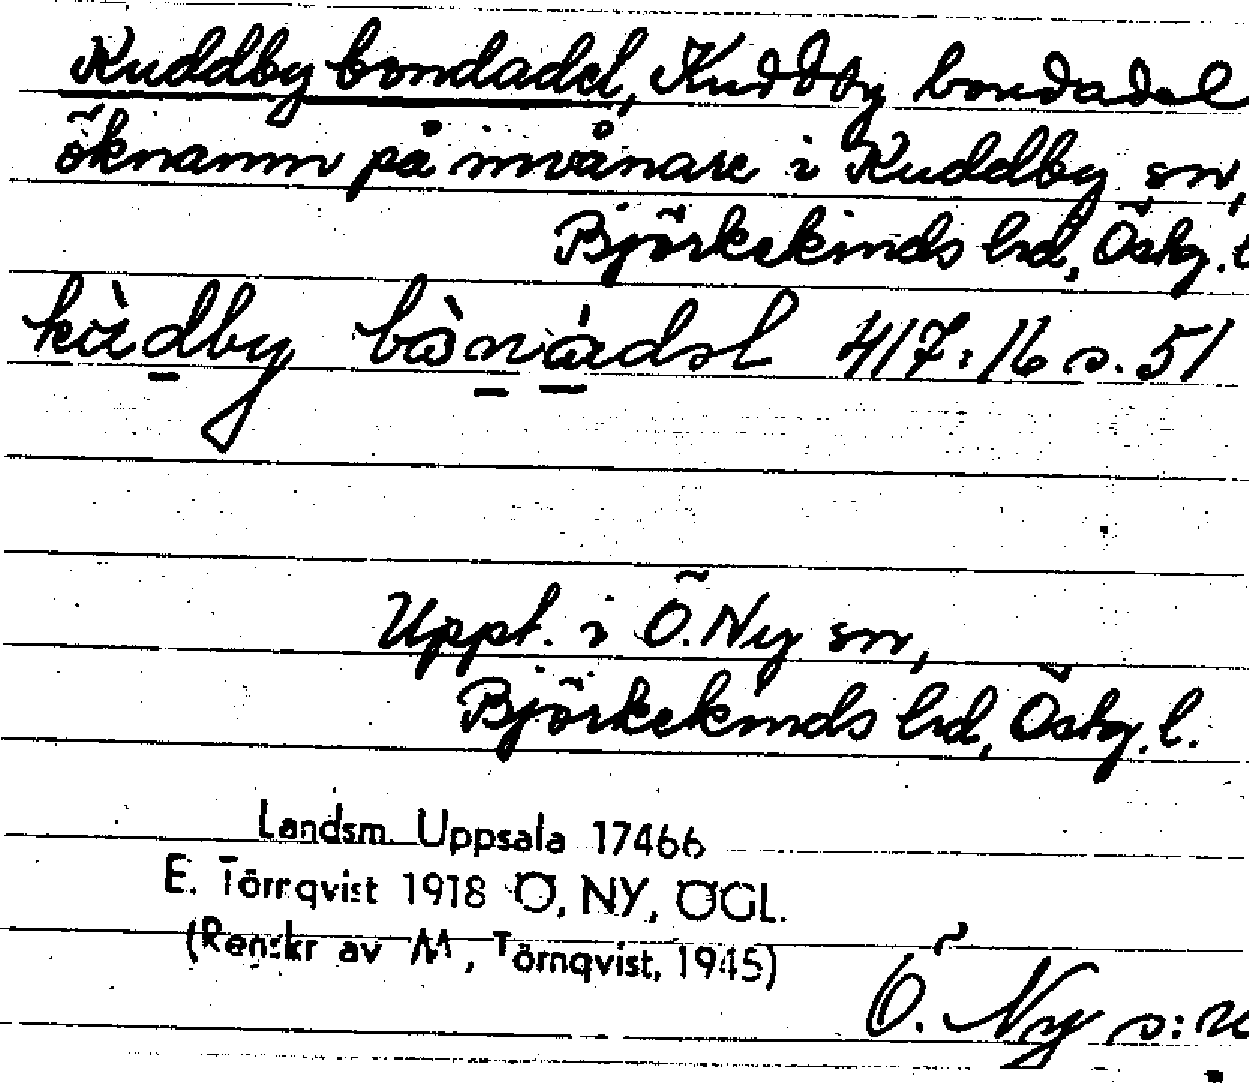 Kuddby bondadel, Kuddby bondadel
öknamn på invånare i Kuddby sn,
Björkekinds hd, Östg. l
Uppt. i Ö. Ny sn,
Björkekinds hd, Östg. l.
Landsm. Uppsala 17466
E. Törnqvist 1918 Ö, NY, ÖGL.
(Renskr av M, Törnqvist, 1945)
417:16 s. 51
Ö. Ny s:n